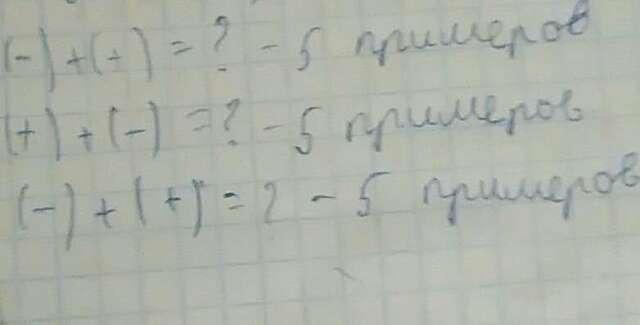 (-)+(+)=? - 5 примеров
(+)+(-)=? - 5 примеров
(-)+(+)=? - 5 примеров